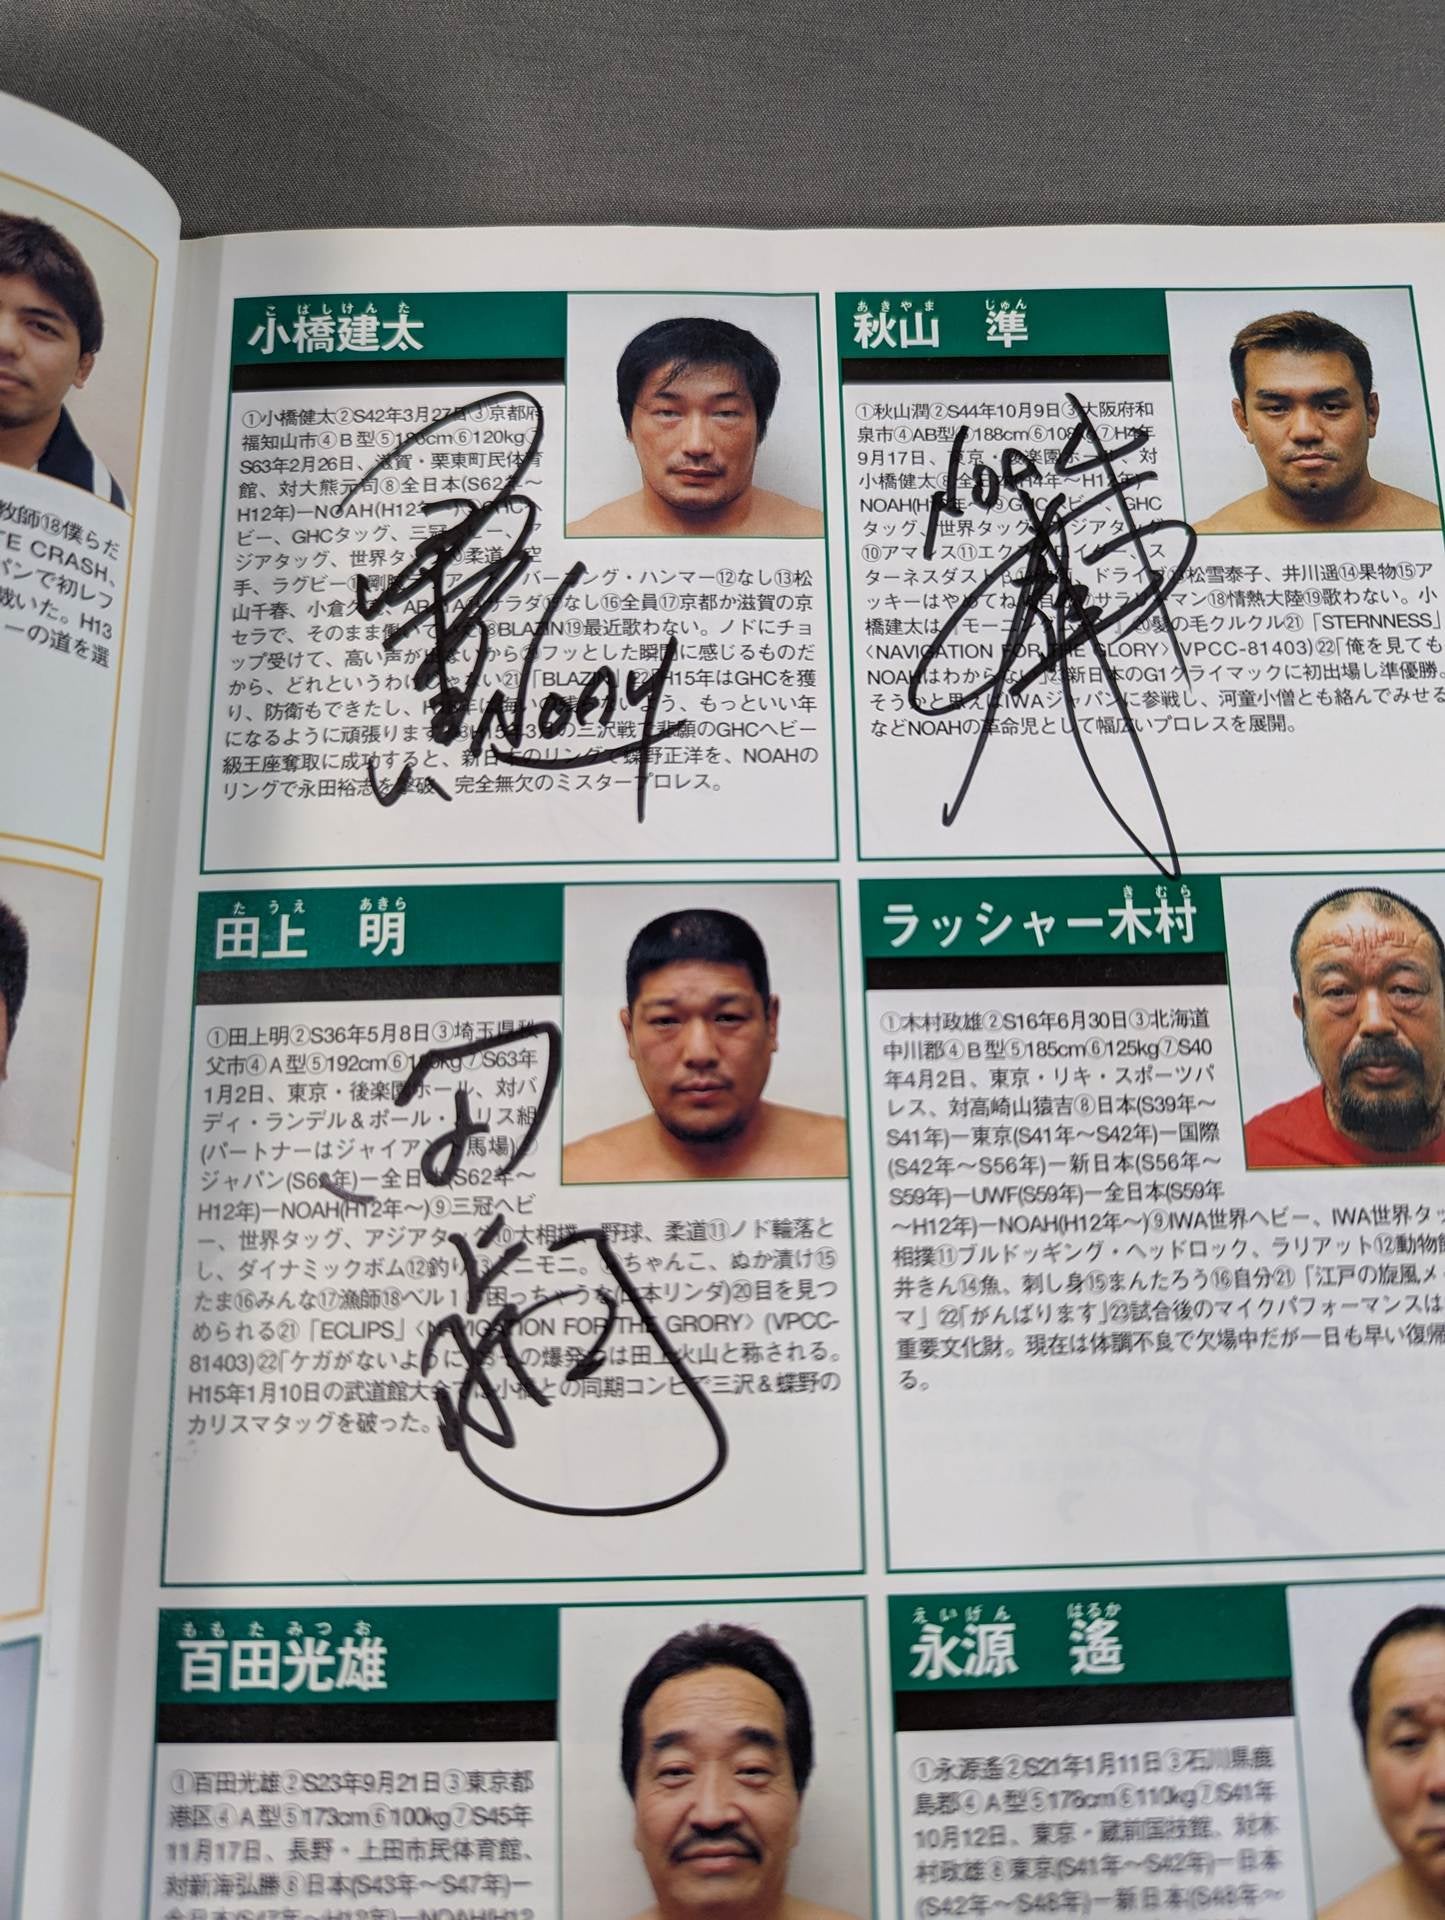 教師⑱僕らだ
TE CRASH、
パンで初レフ
戴いた。H13
ーの道を選
こばしけんた
小橋建太
①小橋健太②S42年3月27日③京都府
福知山市④B型⑤186cm⑥120kg⑦
S63年2月26日、滋賀・栗東町民体育
館、対大熊元司⑧全日本(S62年〜
H12年)ーNOAH(H12年〜)⑨GHCヘ
ビー、GHCタッグ、三冠ヘビー、ア
ジアタッグ、世界タッグ⑩柔道、空
手、ラグビー⑪剛腕ラリアット、バーニング・ハンマー⑫なし⑬松
山千春、小倉久寛、ARATA⑭サラダ⑮なし⑯全員⑰京都か滋賀の京
セラで、そのまま働いてた⑱BLAZIN⑲最近歌わない。ノドにチョ
ップ受けて、高い声が出ないから⑳フッとした瞬間に感じるものだ
から、どれというわけじゃない㉑「BLAZIN」㉒「H15年はGHCを獲
り、防衛もできたし、H16年は悔いの残らないよう、もっといい年
になるように頑張ります」㉓H15年3月の三沢戦で悲願のGHCヘビー
級王座奪取に成功すると、新日本のリングで蝶野正洋を、NOAHの
リングで永田裕志を撃破。完全無欠のミスタープロレス。
NOAH
あきやま じゅん
秋山 準
①秋山潤②S44年10月9日③大阪府和
泉市④AB型⑤188cm⑥108kg⑦H4年
9月17日、東京・後楽園ホール、対
小橋健太⑧全日本(H4年〜H12年)ー
NOAH(H12年〜)⑨GHCヘビー、GHC
タッグ、世界タッグ、アジアタッグ
⑩アマレス⑪エクスプロイダー、ス
ターネスダストβ⑫、ドライブ⑬松雪泰子、井川遥⑭果物⑮ア
ッキーはやめてね⑯自分⑰サラリーマン⑱情熱大陸⑲歌わない。小
橋建太は『モーニング』⑳髪の毛クルクル㉑「STERNNESS」
〈NAVIGATION FOR THE GLORY〉(VPCC-81403)㉒「俺を見ても
NOAHはわからない」㉓新日本のG1クライマックに初出場し準優勝。
そうかと思えばIWAジャパンに参戦し、河童小僧とも絡んでみせる
などNOAHの革命児として幅広いプロレスを展開。
NOAH
たうえ あきら
田上 明
①田上明②S36年5月8日③埼玉県秩
父市④A型⑤192cm⑥120kg⑦S63年
1月2日、東京・後楽園ホール、対バ
ディ・ランデル＆ポール・ハリス組
(パートナーはジャイアント馬場)⑧
ジャパン(S62年)ー全日本(S62年〜
H12年)ーNOAH(H12年〜)⑨三冠ヘビ
ー、世界タッグ、アジアタッグ⑩大相撲、野球、柔道⑪ノド輪落と
し、ダイナミックボム⑫釣り⑬ミニモニ。⑭ちゃんこ、ぬか漬け⑮
たま⑯みんな⑰漁師⑱ベル1⑲困っちゃうな(山本リンダ)⑳目を見つ
められる㉑「ECLIPS」〈NAVIGATION FOR THE GRORY〉(VPCC-
81403)㉒「ケガがないように」㉓その爆発力は田上火山と称される。
H15年1月10日の武道館大会では小橋との同期コンビで三沢＆蝶野の
カリスマタッグを破った。
きむら
ラッシャー木村
①木村政雄②S16年6月30日③北海道
中川郡④B型⑤185cm⑥125kg⑦S40
年4月2日、東京・リキ・スポーツパ
レス、対高崎山猿吉⑧日本(S39年〜
S41年)ー東京(S41年〜S42年)ー国際
(S42年〜S56年)ー新日本(S56年〜
S59年)ーUWF(S59年)ー全日本(S59年
〜H12年)ーNOAH(H12年〜)⑨IWA世界ヘビー、IWA世界タッ
相撲⑪ブルドッギング・ヘッドロック、ラリアット⑫動物館
井きん⑭魚、刺し身⑮まんたろう⑯自分㉑「江戸の旋風メ
マ」㉒「がんばります」㉓試合後のマイクパフォーマンスは
重要文化財。現在は体調不良で欠場中だが一日も早い復帰
る。
ももたみつお
百田光雄
①百田光雄②S23年9月21日③東京都
港区④A型⑤173cm⑥100kg⑦S45年
11月17日、長野・上田市民体育館、
対新海弘勝⑧日本(S43年〜S47年)ー
全日本(S47年〜H12年)ーNOAH(H12
えいげん はるか
永源 遙
①永源遙②S21年1月11日③石川県鹿
島郡④A型⑤178cm⑥110kg⑦S41年
10月12日、東京・蔵前国技館、対木
村政雄⑧東京(S41年〜S42年)ー日本
(S42年〜S48年)ー新日本(S48年〜